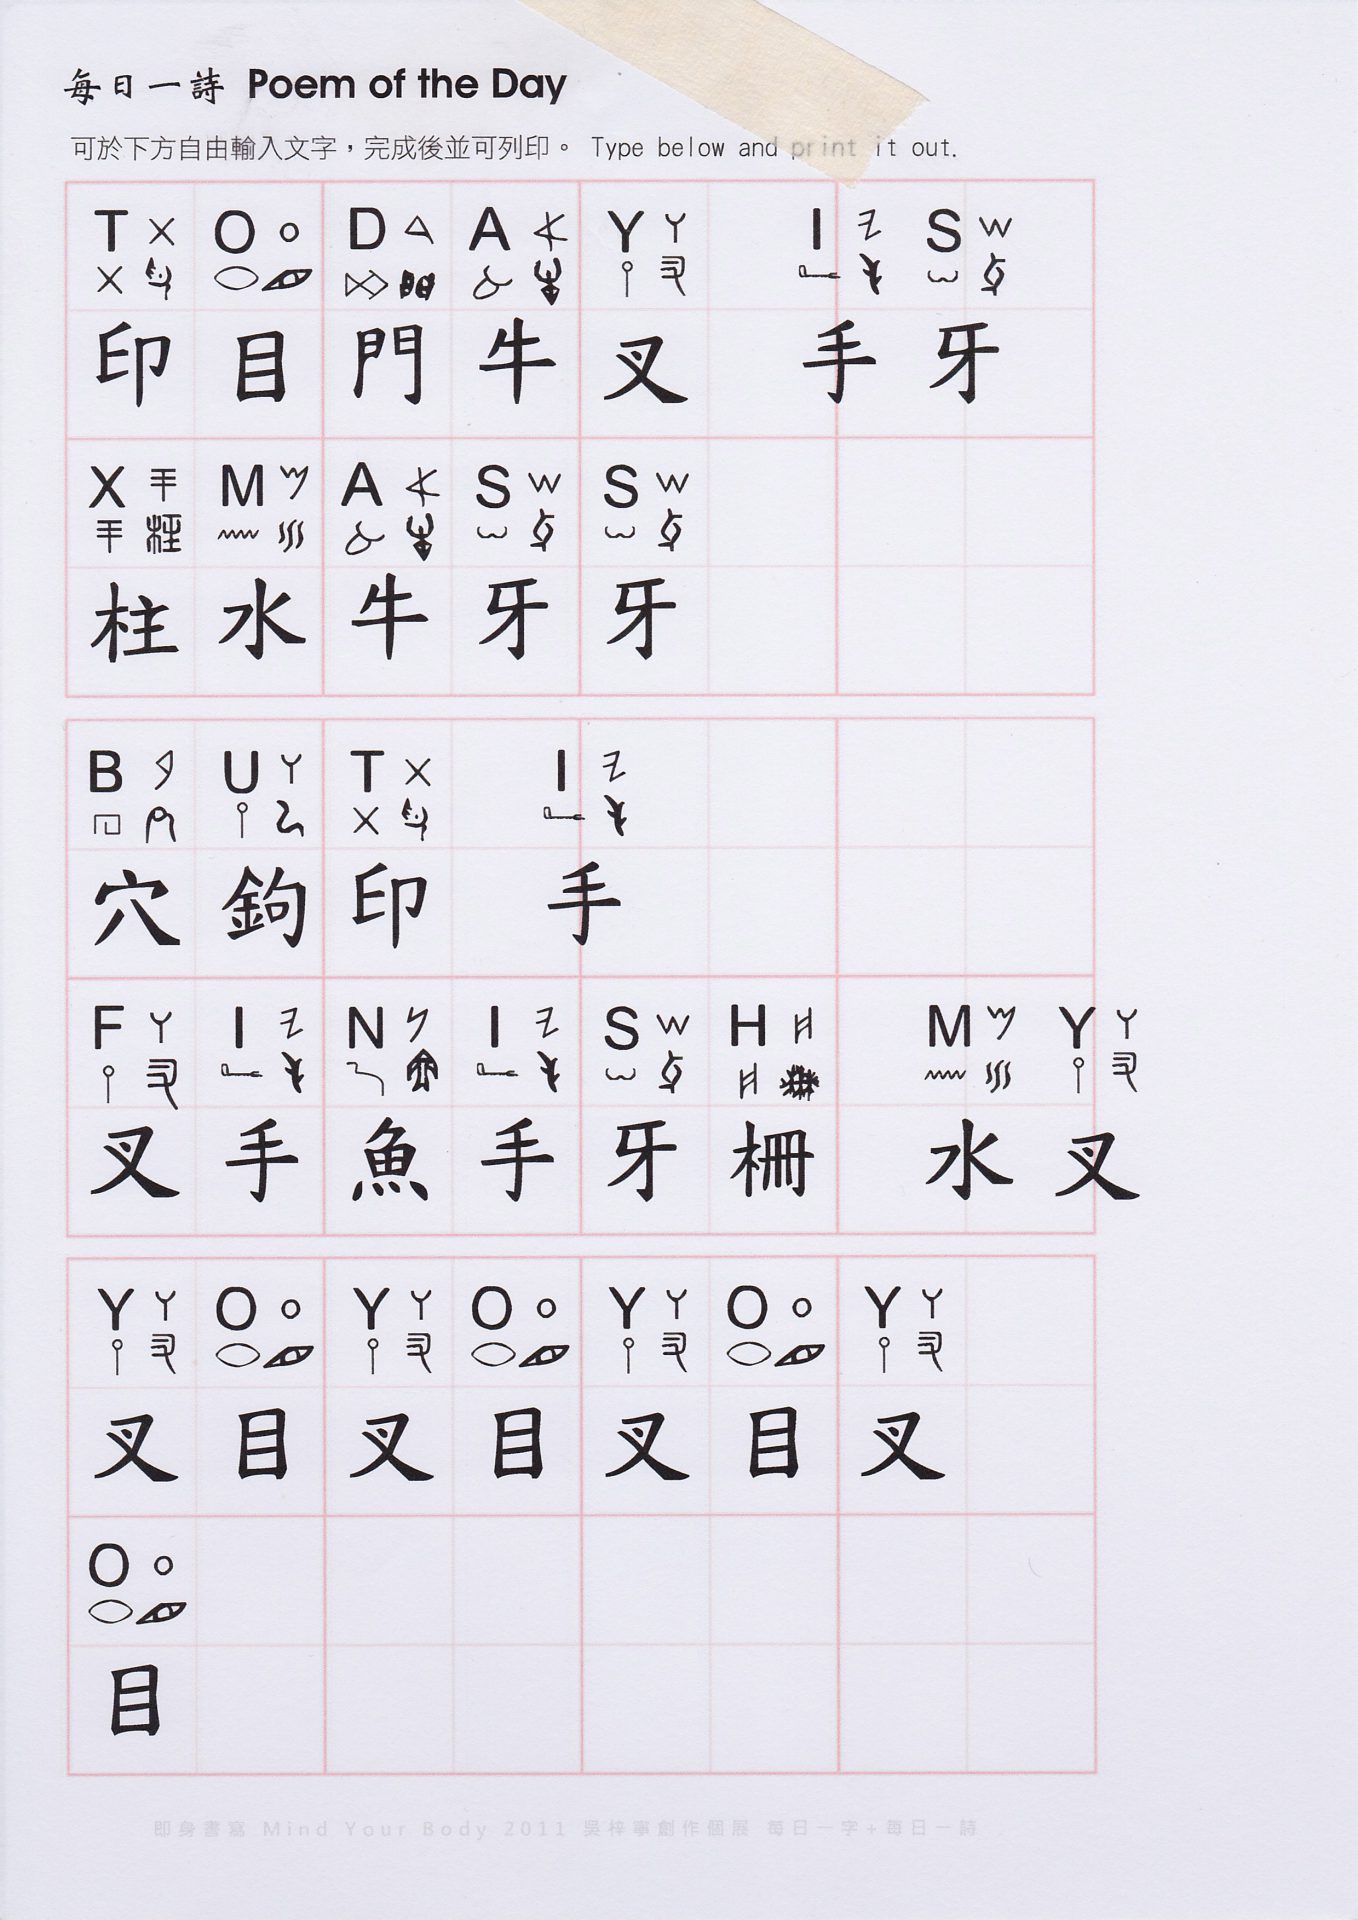 每日一詩 Poem of the Day
可於下方自由輸入文字，完成後並可列印。 Type below and print it out.
T O D A Y I S
印 目 門 牛 叉 手 牙
X M A S S
柱 水 牛 牙 牙
B U T I
穴 鉤 印 手
F I N I S H M Y
叉 手 魚 手 牙 柵 水 叉
Y O Y O Y O Y
叉 目 叉 目 叉 目 叉
O
目
即身書寫 Mind Your Body 2011 吳梓寧創作個展 每日一字+每日一詩